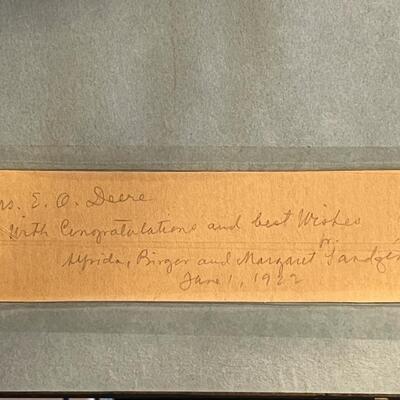 rs. E. O. Deere
With Congratulations and best Wishes
fr.
Alfrida, Birger and Margaret Sandzén
June 1, 1922